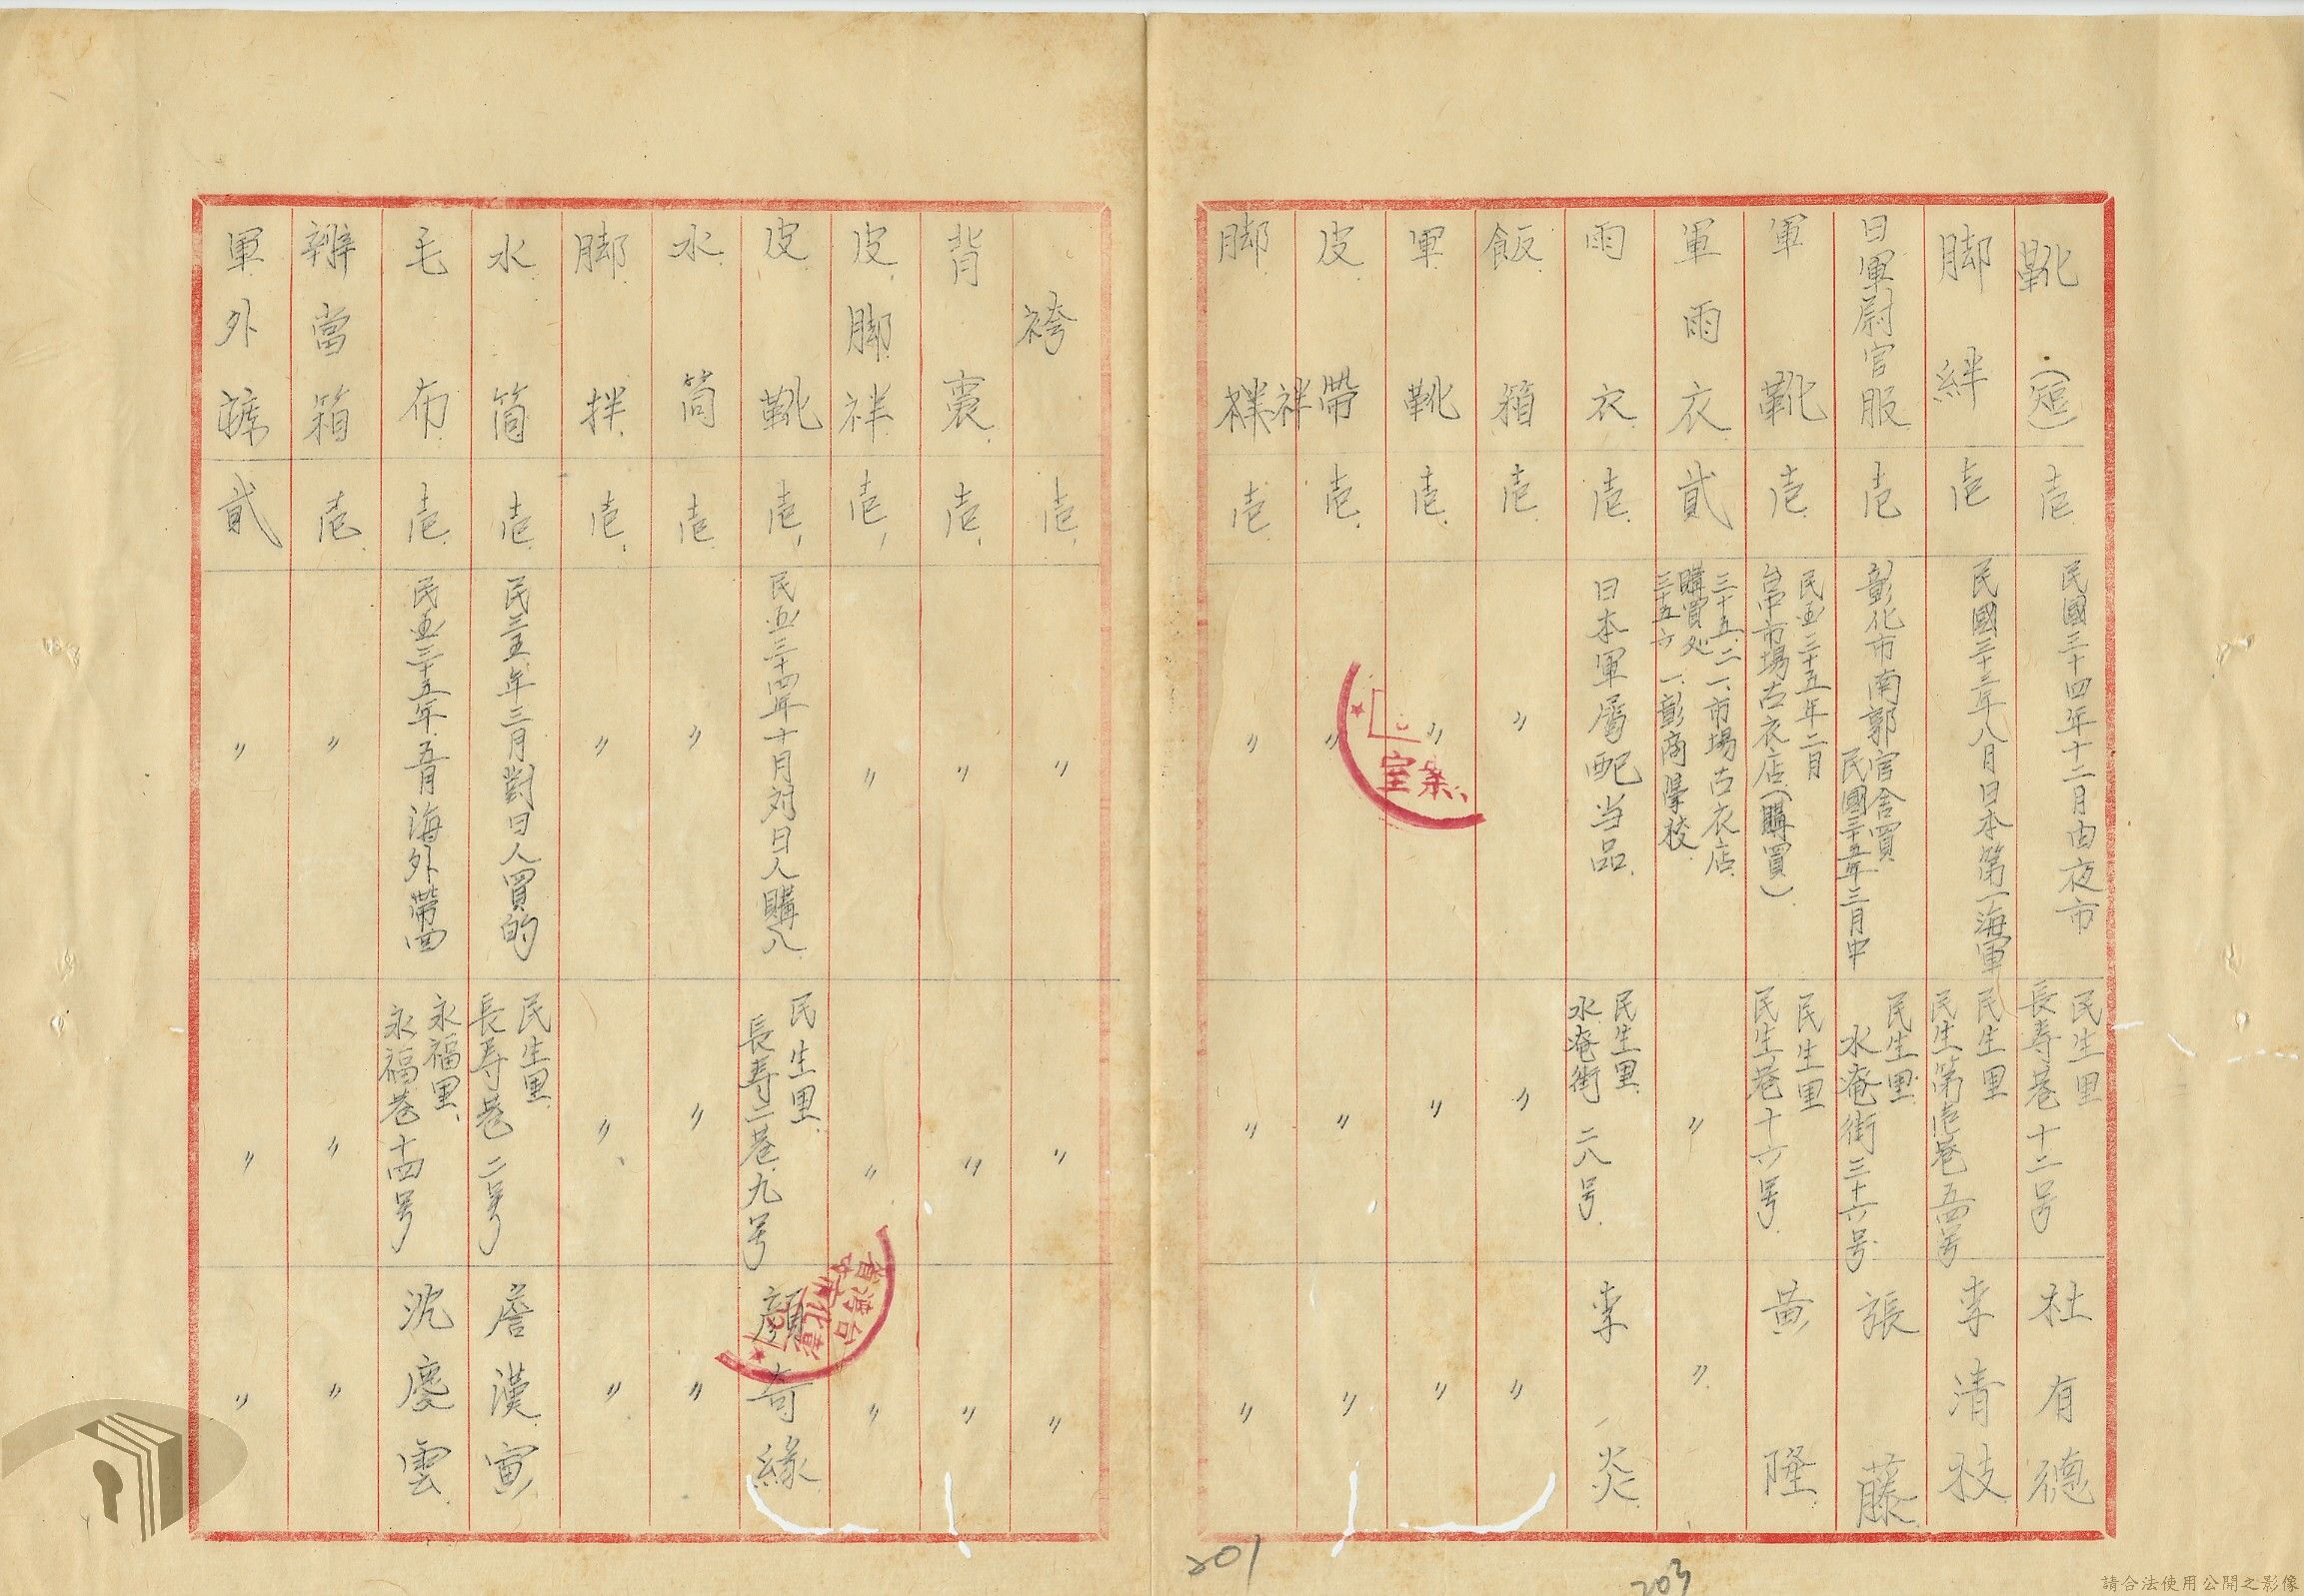 靴(短) 壱 民國三十四年十二月由夜市 民生里 長寿巷十二号 杜有德
脚絆 壱 民國三十三年八月日本第一海軍 民生里 民生第壱巷五四号 李清枝
日軍尉官服 壱 彰化市南郭官舍買 民國三十五年三月中 民生里 水庵街三十六号 張藤
軍靴 壱 民國三十五年二月 台中市場古衣店(購買) 民生里 民生巷十六号 黄隆
軍雨衣 貳 三十五、二一、市場古衣店 購買処 三十五六一、彰商学校 〃 〃
雨衣 壱 日本軍属配当品 民生里 水庵街二八号 李炎
飯箱 壱 〃 〃 〃
軍靴 壱 〃 〃 〃
皮帶 壱 〃 〃 〃
脚袢 壱 〃 〃 〃
袴 壱 〃 〃 〃
背裹 壱 〃 〃 〃
皮脚袢 壱 〃 〃 〃
皮靴 壱 民國三十四年十月対日人購入 民生里 長寿二巷九号 顏奇緣
水筒 壱 〃 〃 〃
脚拌 壱 〃 〃 〃
水筒 壱 民三五年三月對日人買的 民生里 長寿巷二号 詹漢寅
毛布 壱 民國三十五年五月海外帶回 永福里 永福巷十四号 沈慶雲
辨當箱 壱 〃 〃 〃
軍外 貳 〃 〃 〃
室案
台灣省
彰化市
201
203
請合法使用公開之影像